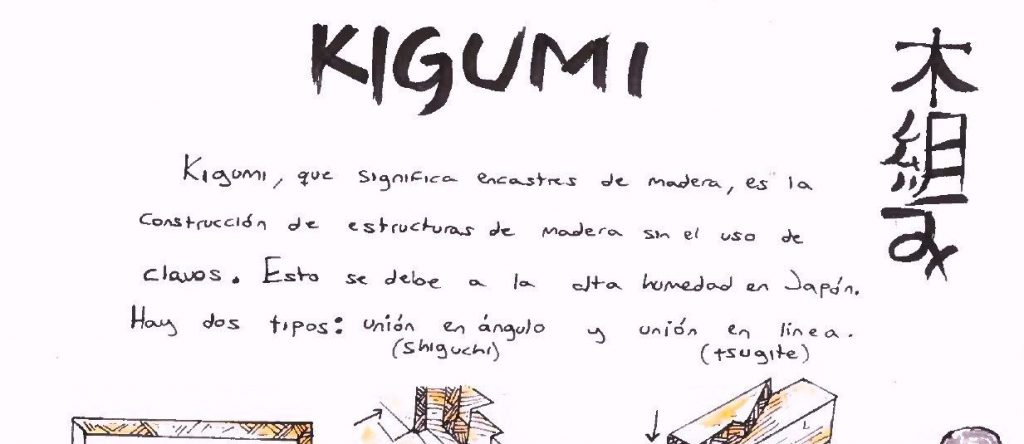 KIGUMI
木組み
Kigumi, que significa encastres de madera, es la
construcción de estructuras de madera sin el uso de
clavos. Esto se debe a la alta humedad en Japón.
Hay dos tipos: unión en ángulo y unión en linea.
(shiguchi) (tsugite)